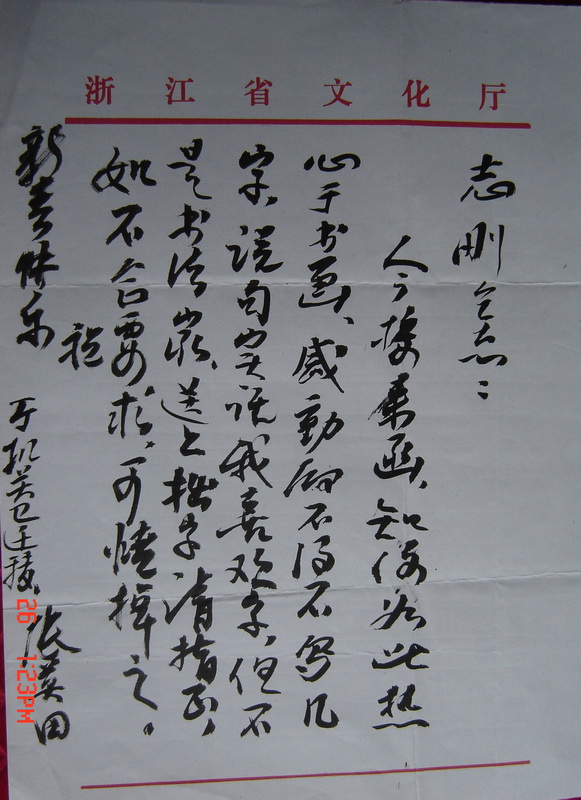 浙江省文化厅
志刚同志：
今接来函，知您如此热
心于书画、感动的不得不写几
字，说句实话我喜欢字，但不
是书法家，送上拙字请指正，
如不合要求，可烧掉之。
祝
新春快乐
厅机关已迁移，
张英田
26 1:23PM